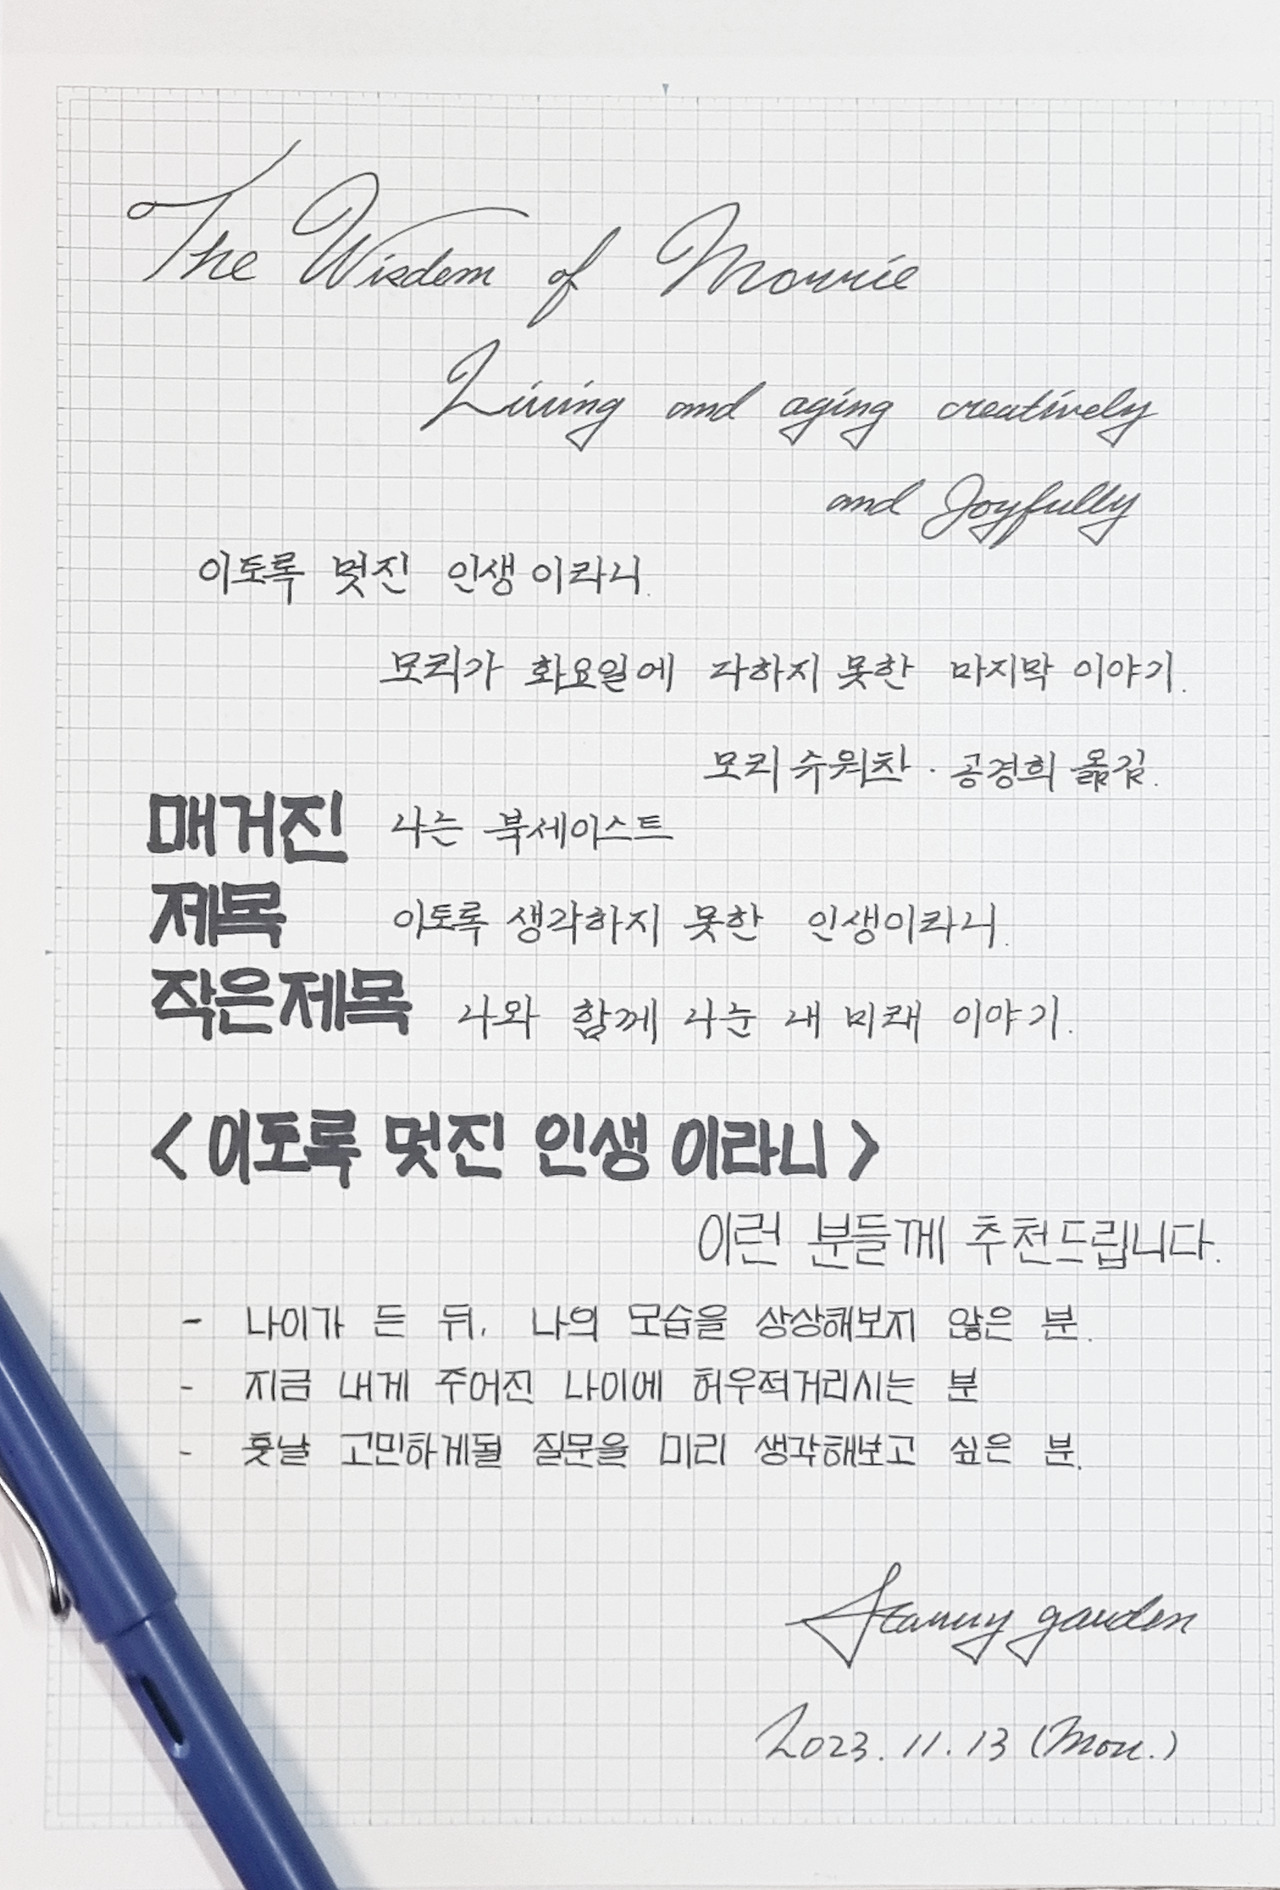 The Wisdom of Morrie
Living and aging creatively
and Joyfully
이토록 멋진 인생이라니.
모리가 화요일에 다하지 못한 마지막 이야기.
모리 슈워츠 · 공경희 옮김.
매거진 나는 북세이스트
제목 이토록 생각하지 못한 인생이라니.
작은제목 나와 함께 나눈 내 미래 이야기.
< 이토록 멋진 인생이라니 >
이런 분들께 추천드립니다.
- 나이가 든 뒤, 나의 모습을 상상해보지 않은 분.
- 지금 내게 주어진 나이에 허우적거리시는 분
- 훗날 고민하게될 질문을 미리 생각해보고 싶은 분.
garden
2023. 11. 13 (Mon.)